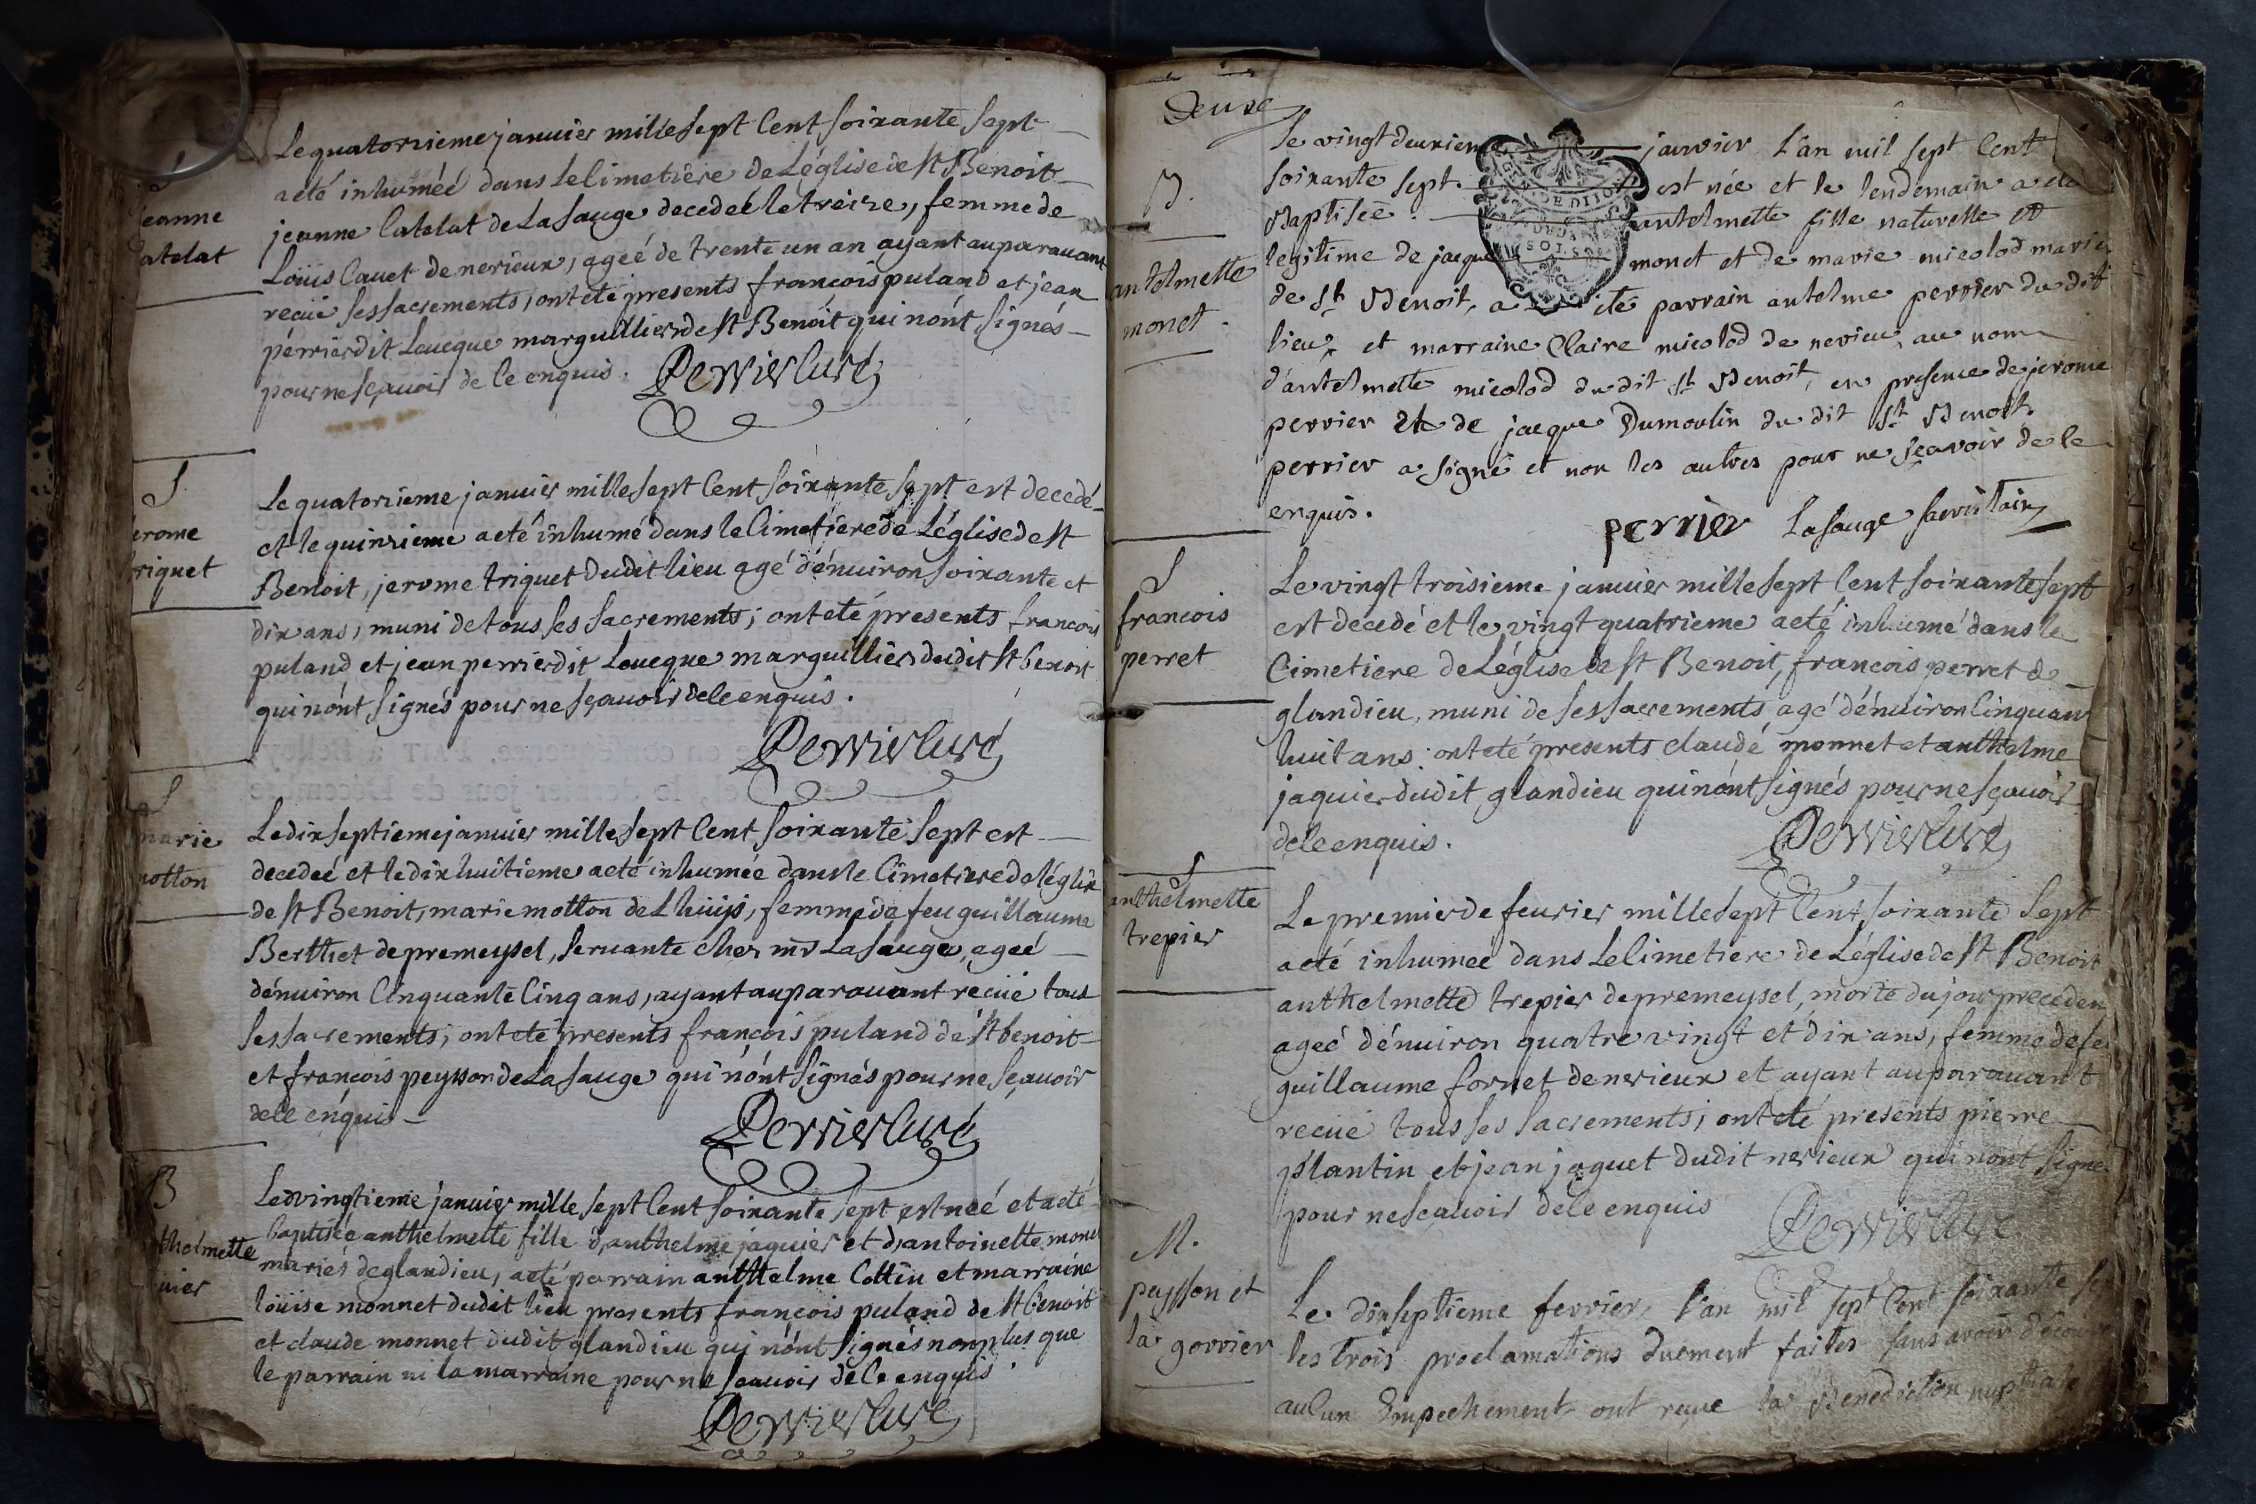 S
jeanne
Catelat
Le quatorzieme janvier mille sept Cent soixante sept
a eté inhumeé dans Le Cimetiere de L'église de St Benoit
jeanne Catelat de La Sauge decedeé le treize, femme de
Loüis Cavet de nerieux, ageé de trente un an ayant auparavant
recüe ses sacrements, ont eté presents francois puland et jean
perrier dit Loucque marguilliers de St Benoit qui n'ont signés
pour ne sçavoir de le enquis.
Perrier Curé
S
jerome
triquet
Le quatorzieme janvier mille sept Cent soixante sept est decedé
et le quinzieme a eté inhumé dans le Cimetiere de L'église de St
Benoit, jerome triquet dudit lieu agé d'environ soixante et
dix ans, muni de tous ses sacrements; ont eté presents francois
puland et jean perrier dit Loucque marguilliers dudit St benoit
qui n'ont signés pour ne sçavoir de le enquis.
Perrier Curé
S
marie
motton
Le dix septieme janvier mille sept Cent soixante sept est
decedeé et le dix huitieme a eté inhumée dans le Cimetiere de l'église
de St Benoit, marie motton de Lhuijs, femme de feu guillaume
Berthet de premeysel, servante chez mr La Sauge, ageé
d'environ Cinquante Cinq ans, ayant auparavant recüe tous
ses sacrements; ont eté presents francois puland de St benoit
et francois peysson de La Sauge qui n'ont signés pour ne sçavoir
de le enquis
Perrier Curé
B
anthelmette
jaquier
Le vingtieme janvier mille sept Cent soixante sept est neé et a eté
baptisée anthelmette fille d'anthelme jaquier et d'antoinette monet
mariés de glandieu, a eté parrain anthelme Cottin et marraine
loüise monnet dudit lieu presents francois puland de St benoit
et claude monnet dudit glandieu qui n'ont signés non plus que
le parrain ni la marraine pour ne scavoir de le enquis
Perrier Curé
Deuxe
B.
antelmette
monet.
Le vingt deuxieme janvier l'an mil sept Cent
soixante sept. est née et le lendemain a eté
Baptisée antelmette fille naturelle et
legitime de jacque monet et de marie micolod mariés
de St Benoit, a eté parrain antelme perrier du dit
lieu et marraine Claire micolod de nerieu, au nom
d'antelmette micolod du dit St Benoit, en presence de jerome
perrier et de jacque Dumoulin du dit St Benoit.
perrier a signé et non les autres pour ne sçavoir de le
enquis.
perrier Lasauge sacristain
S
francois
perret
Le vingt troisieme janvier mille sept Cent soixante sept
est decedé et le vingt quatrieme a eté inhumé dans le
Cimetiere de L'église de St Benoit, francois perret de
glandieu, muni de ses sacrements, agé d'environ Cinquante
huit ans; ont eté presents claude monnet et anthelme
jaquier dudit glandieu qui n'ont signés pour ne sçavoir
de le enquis.
Perrier Curé
S
anthelmette
trepier
Le premier de fevrier mille sept Cent soixante sept
a eté inhumeé dans Le Cimetiere de L'église de St Benoit
anthelmette trepier de premeysel, morte du jour precedent
ageé d'environ quatre vingt et dix ans, femme de feu
guillaume fornet de nerieux et ayant auparavant
recüe tous ses sacrements; ont eté presents pierre
plantin et jean jaquet dudit nerieux qui n'ont signé
pour ne scavoir de le enquis
Perrier Curé
M.
peysson et
la gorrier
Le dixseptieme fevrier, l'an mil sept Cent soixante sept
les trois proclamations duement faites sans avoir decouvert
aucun Empechement ont reçue la Benediction nuptiale